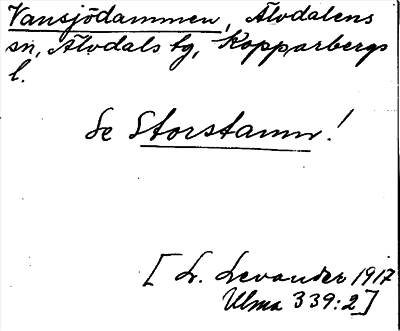 Vansjödammen, Älvdalens
sn, Älvdals tg, Kopparbergs
l.
Se Storstamm!
[L. Levander 1917
Ulma 339:2]